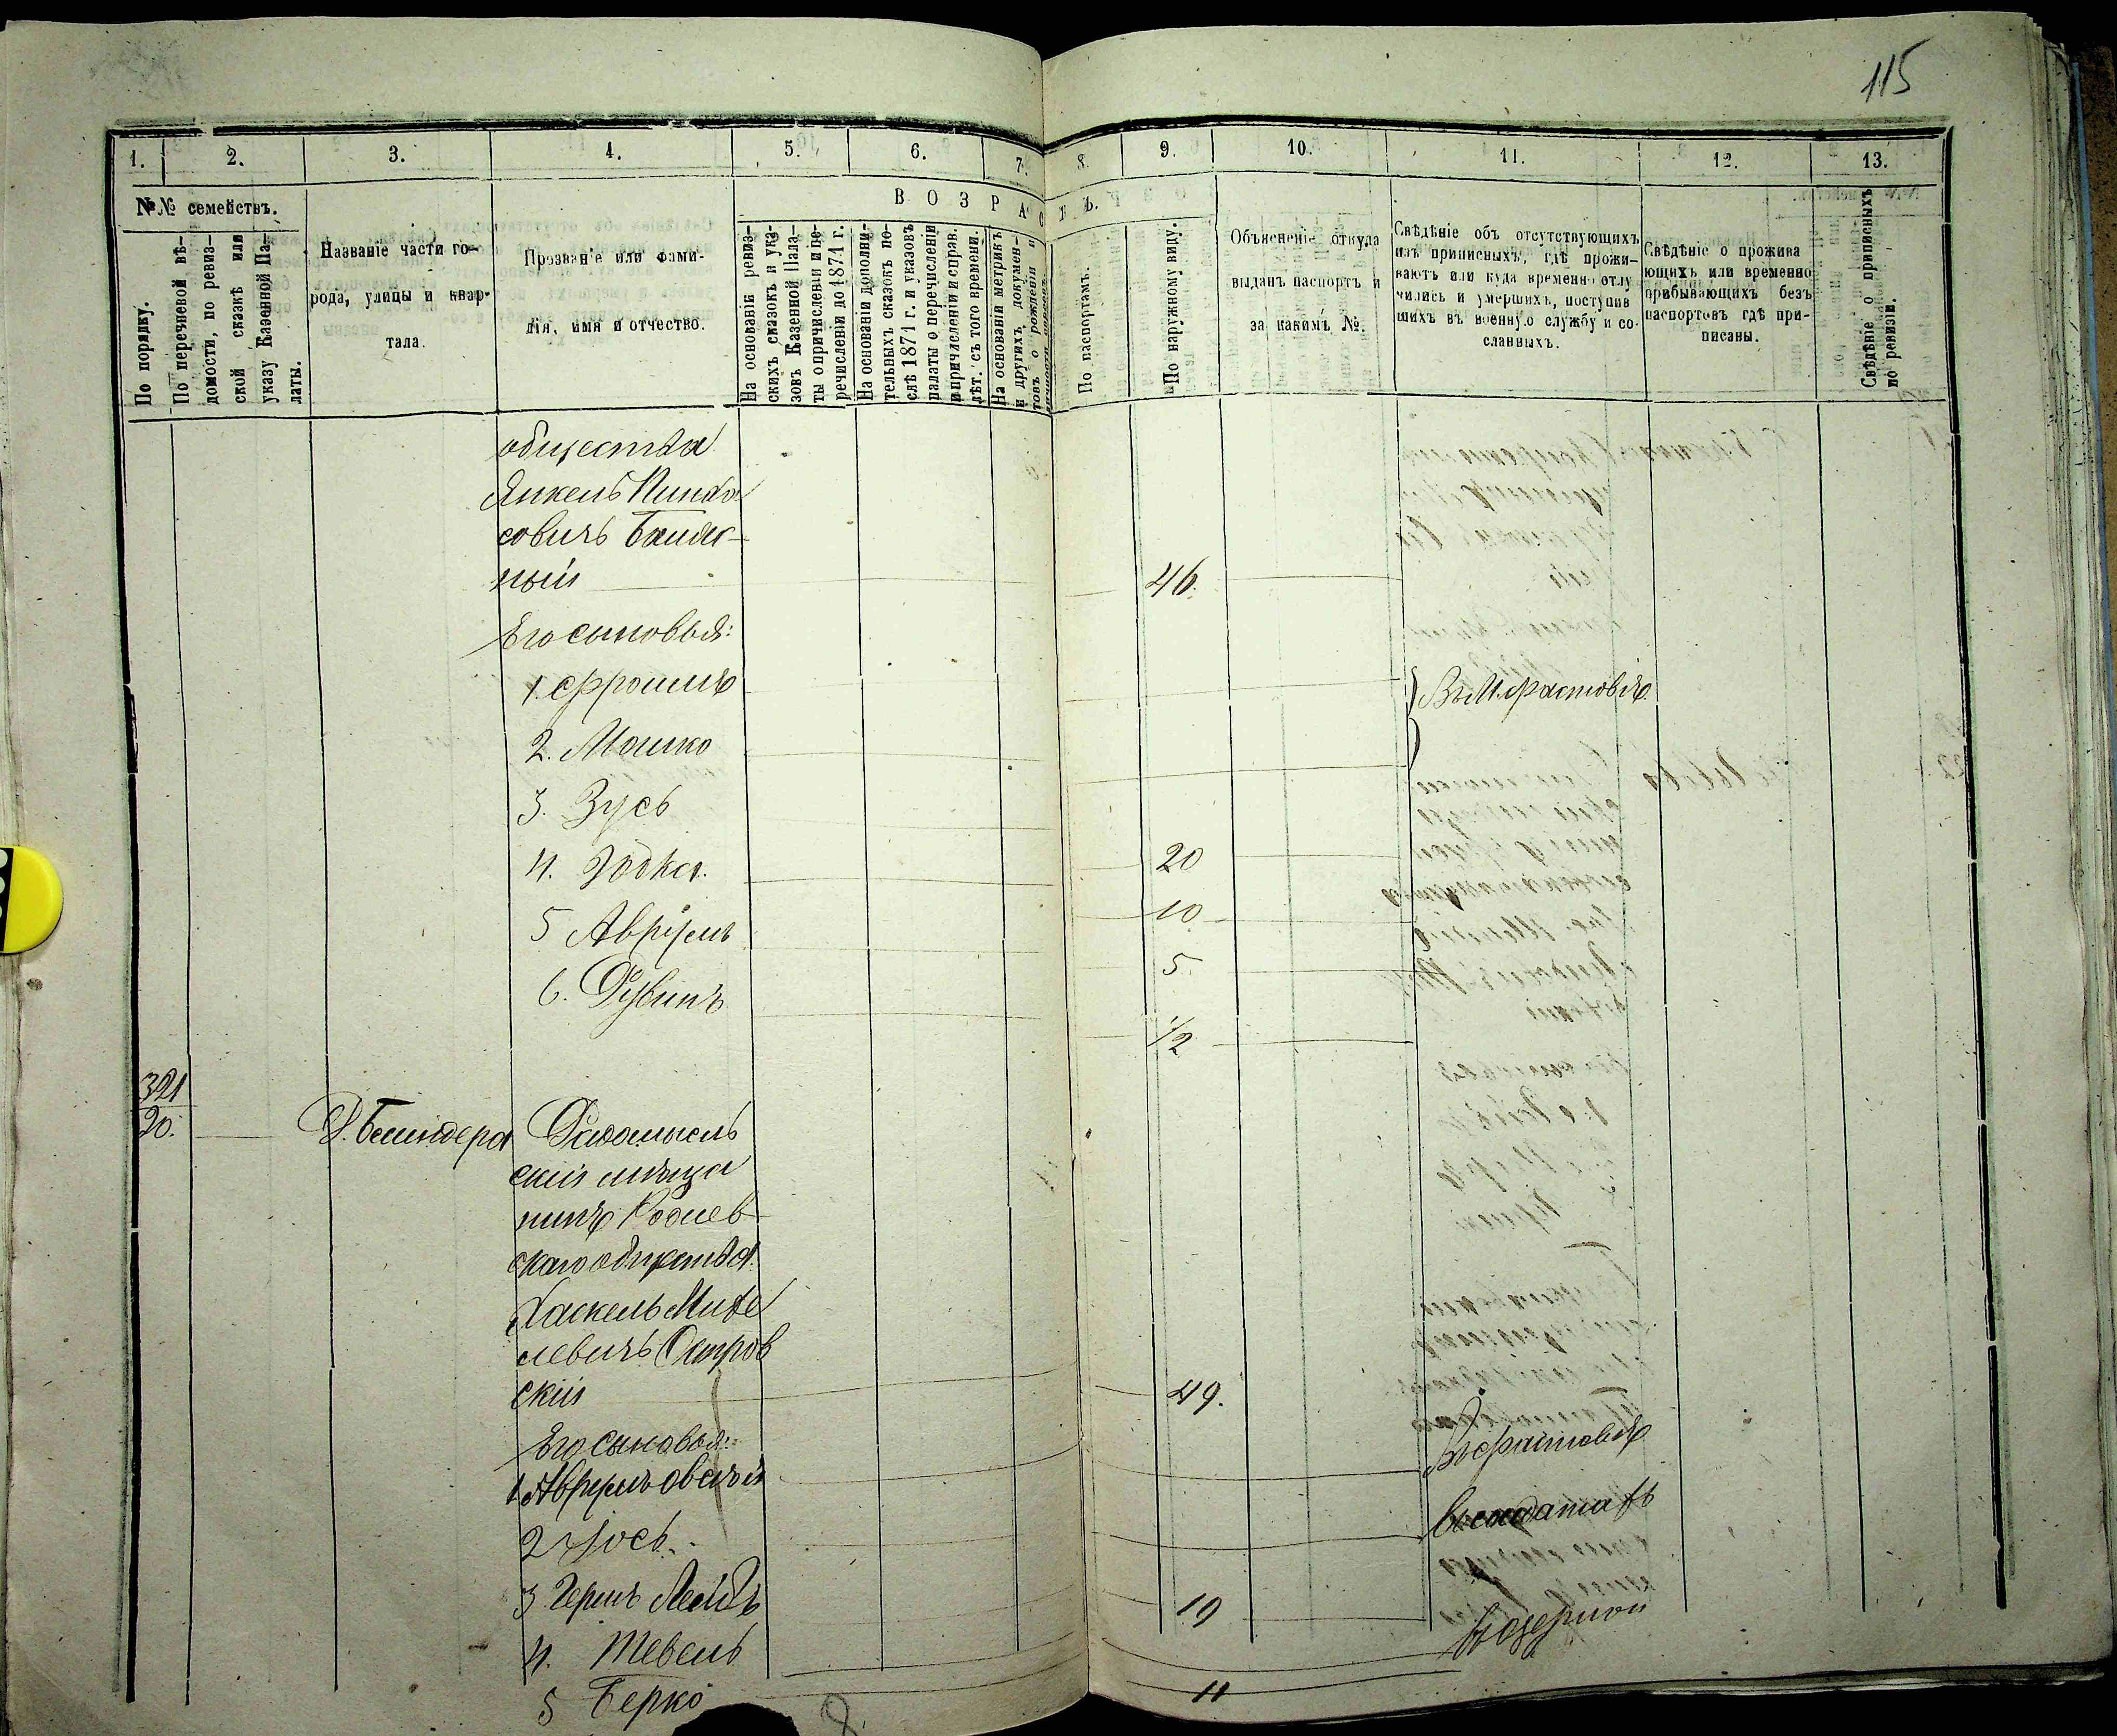 115
1. 2. 3. 4. 5. 6. 7. 8. 9. 10. 11. 12. 13.
№№ семействъ.
По порядку.
По перечневой вѣ-
домости, по ревиз-
ской сказкѣ или
указу Казенной Па-
латы.
Названіе части го-
рода, улицы и квар-
тала.
Прозваніе или фами-
лія, имя и отчество.
ВОЗРАСТЪ.
На основаніи ревиз-
скихъ сказокъ и ука-
зовъ Казенной Пала-
ты о причисленіи и пе-
речисленіи до 1871 г.
На основаніи дополни-
тельныхъ сказокъ по-
слѣ 1871 г. и указовъ
палаты о перечисленіи
и причисленіи и справ.
лѣт. съ того времени.
На основаніи метрикъ
и другихъ докумен-
товъ о рожденіи и
По паспортамъ.
По наружному виду.
Объясненіе откуда
выданъ паспортъ и
за какимъ №.
Свѣдѣніе объ отсутствующихъ
изъ приписныхъ, гдѣ прожи-
ваютъ или куда временно отлу
чились и умершихъ, поступив
шихъ въ военную службу и со-
сланныхъ.
Свѣдѣніе о прожива
ющихъ или временно
прибывающихъ безъ
паспортовъ гдѣ при-
писаны.
Свѣдѣніе о приписныхъ
по ревизіи.
общества
Янкель Пинхо
совичъ
ный 46.
Его сыновья:
1. Сфроимъ
2. Мошко
3. Зусь
4. 20
5 Аврумъ 10
6. Рувинъ 5.
1/2
321
20.
Радомысль
скій мѣща
нинъ
скаго общества
Хаскель Михе
левичъ Остров
скій 49.
Его сыновья:
1 Аврумъ Овсѣй
2 Іось
3 Гершъ Лейбъ 19
4. Тевель
5 Берко 11